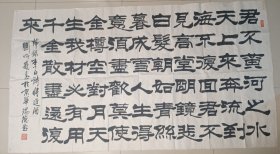 君不黄河之水
天上來奔流到
海不復回君不
見高堂明鏡悲
白髮朝如青絲
暮成雪人生得
意須盡歡莫使
金樽空對月天
生我材必有用
千金散盡還復
來